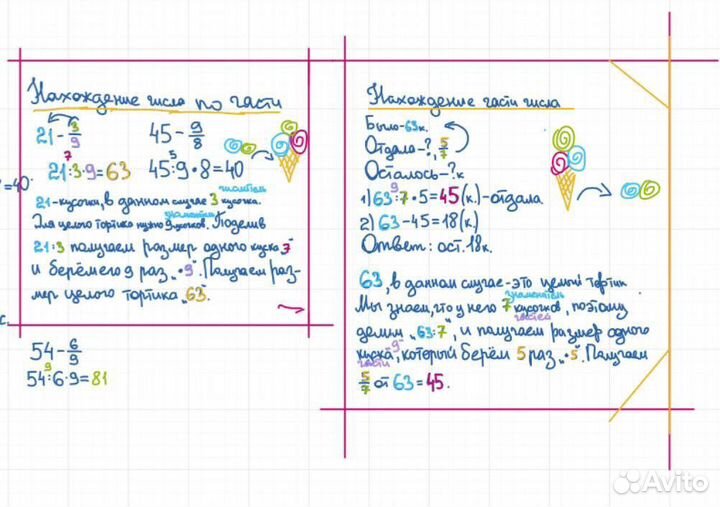 Нахождение числа по части
21 - 3/9
45 - 9/8
7
21:3·9=63
5
45:9·8=40
=40
числитель
21-кусочки, в данном случае 3 кусочка.
знаменатель
Для целого тортика нужно 9 кусочков. Поделив
21:3 получаем размер одного куска "7"
и берём его 9 раз "·9". Получаем раз-
мер целого тортика "63".
54 - 6/9
9
54:6·9=81
Нахождение части числа
Было-63к.
Отдала-?, 5/7
Осталось-?к
9
1) 63:7·5=45(к.)-отдала.
2) 63-45=18(к.)
Ответ: ост. 18к.
63, в данном случае-это целый тортик
знаменатель
Мы знаем, что у него 7 кусочков, поэтому
частей
делим "63:7", и получаем размер одного
куска "9", который берём 5 раз "·5". Получаем
части
5/7 от 63=45.
Avito